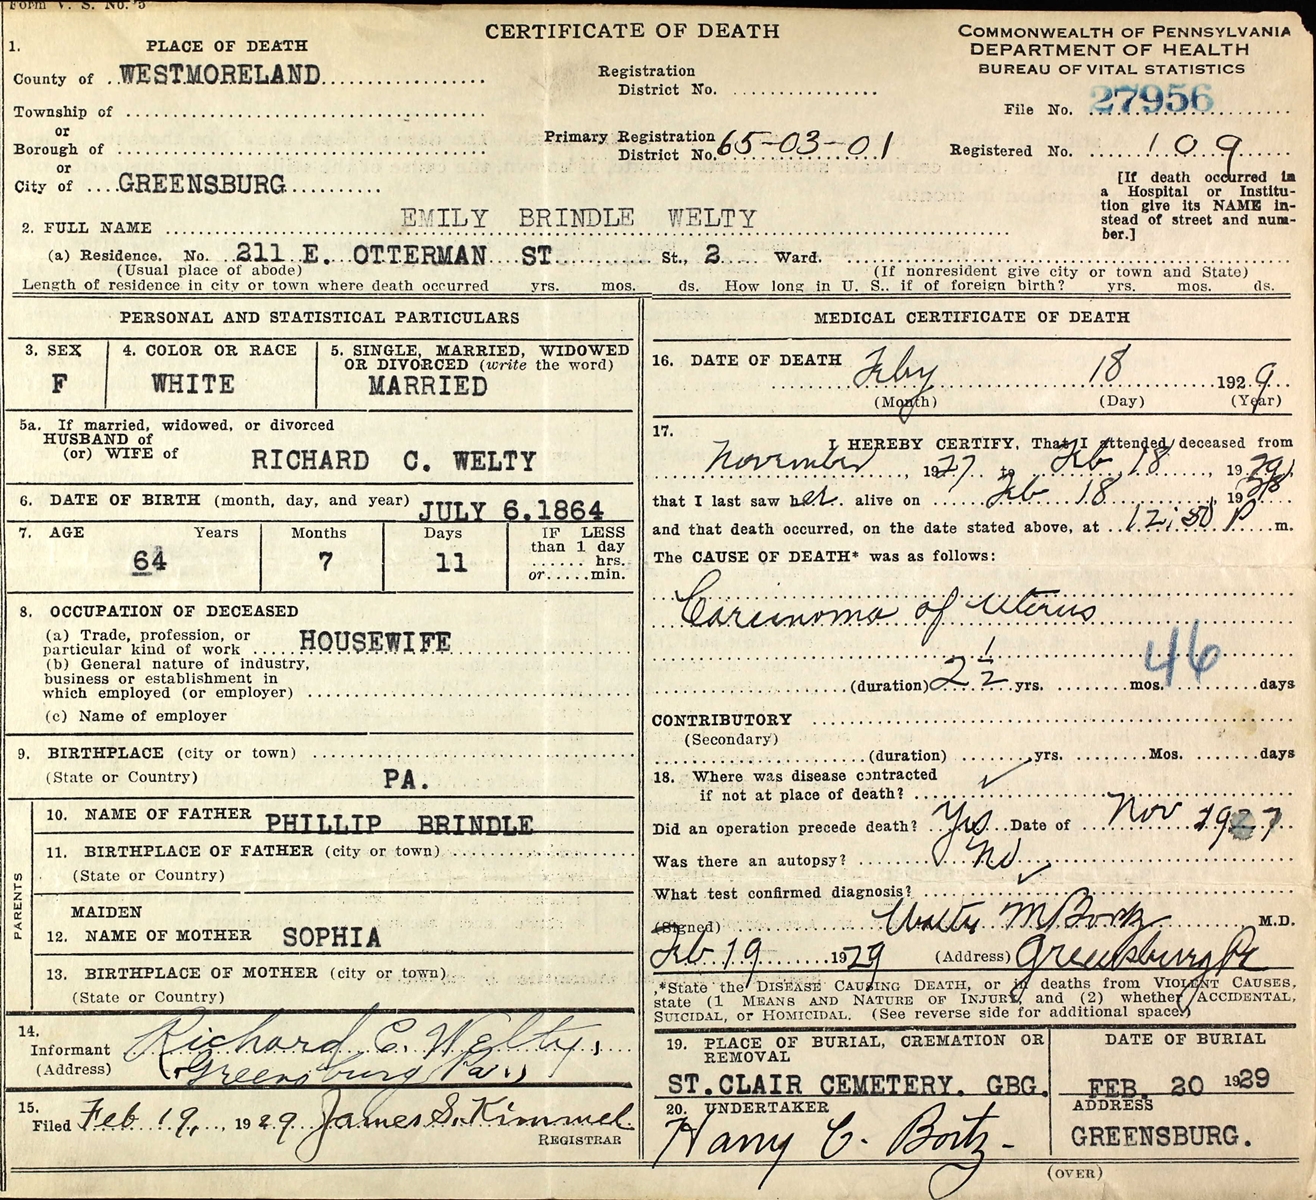 Form V. S. No. 5
CERTIFICATE OF DEATH
COMMONWEALTH OF PENNSYLVANIA
DEPARTMENT OF HEALTH
BUREAU OF VITAL STATISTICS
1. PLACE OF DEATH
County of WESTMORELAND
Registration District No.
File No. 27956
Township of
or
Borough of
or
City of GREENSBURG
Primary Registration District No. 65-03-01
Registered No. 109
[If death occurred in
a Hospital or Institu-
tion give its NAME in-
stead of street and num-
ber.]
2. FULL NAME EMILY BRINDLE WELTY
(a) Residence. No. 211 E. OTTERMAN ST St., 2 Ward.
(Usual place of abode) (If nonresident give city or town and State)
Length of residence in city or town where death occurred yrs. mos. ds. How long in U. S., if of foreign birth? yrs. mos. ds.
PERSONAL AND STATISTICAL PARTICULARS
3. SEX
F
4. COLOR OR RACE
WHITE
5. SINGLE, MARRIED, WIDOWED
OR DIVORCED (write the word)
MARRIED
5a. If married, widowed, or divorced
HUSBAND of
(or) WIFE of RICHARD C. WELTY
6. DATE OF BIRTH (month, day, and year) JULY 6.1864
7. AGE Years Months Days
64 7 11
IF LESS
than 1 day
hrs.
or min.
8. OCCUPATION OF DECEASED
(a) Trade, profession, or
particular kind of work HOUSEWIFE
(b) General nature of industry,
business or establishment in
which employed (or employer)
(c) Name of employer
9. BIRTHPLACE (city or town)
(State or Country) PA.
PARENTS
10. NAME OF FATHER PHILLIP BRINDLE
11. BIRTHPLACE OF FATHER (city or town)
(State or Country)
MAIDEN
12. NAME OF MOTHER SOPHIA
13. BIRTHPLACE OF MOTHER (city or town)
(State or Country)
14.
Informant Richard C. Welty,
(Address) Greensburg Pa.
15.
Filed Feb 19, 1929 James S. Kimmel
REGISTRAR
MEDICAL CERTIFICATE OF DEATH
16. DATE OF DEATH Feby 18 1929
(Month) (Day) (Year)
17.
I HEREBY CERTIFY, That I attended deceased from
November, 1927 to Feb 18, 1929,
that I last saw her alive on Feb 18, 19
and that death occurred, on the date stated above, at 12:50 P m.
The CAUSE OF DEATH* was as follows:
Carcinoma of uterus
46
(duration) 2 1/2 yrs. mos. days
CONTRIBUTORY
(Secondary)
(duration) yrs. Mos. days
18. Where was disease contracted
if not at place of death?
Did an operation precede death? Yes Date of Nov 1927
Was there an autopsy? No
What test confirmed diagnosis?
(Signed) M.D.
Feb 19 1929 (Address) Greensburg Pa
*State the DISEASE CAUSING DEATH, or in deaths from VIOLENT CAUSES,
state (1 MEANS AND NATURE OF INJURY, and (2) whether ACCIDENTAL,
SUICIDAL, or HOMICIDAL. (See reverse side for additional space.)
19. PLACE OF BURIAL, CREMATION OR
REMOVAL
ST.CLAIR CEMETERY. GBG.
DATE OF BURIAL
FEB. 20 1929
20. UNDERTAKER
Harry C. Bortz
ADDRESS
GREENSBURG.
(OVER)